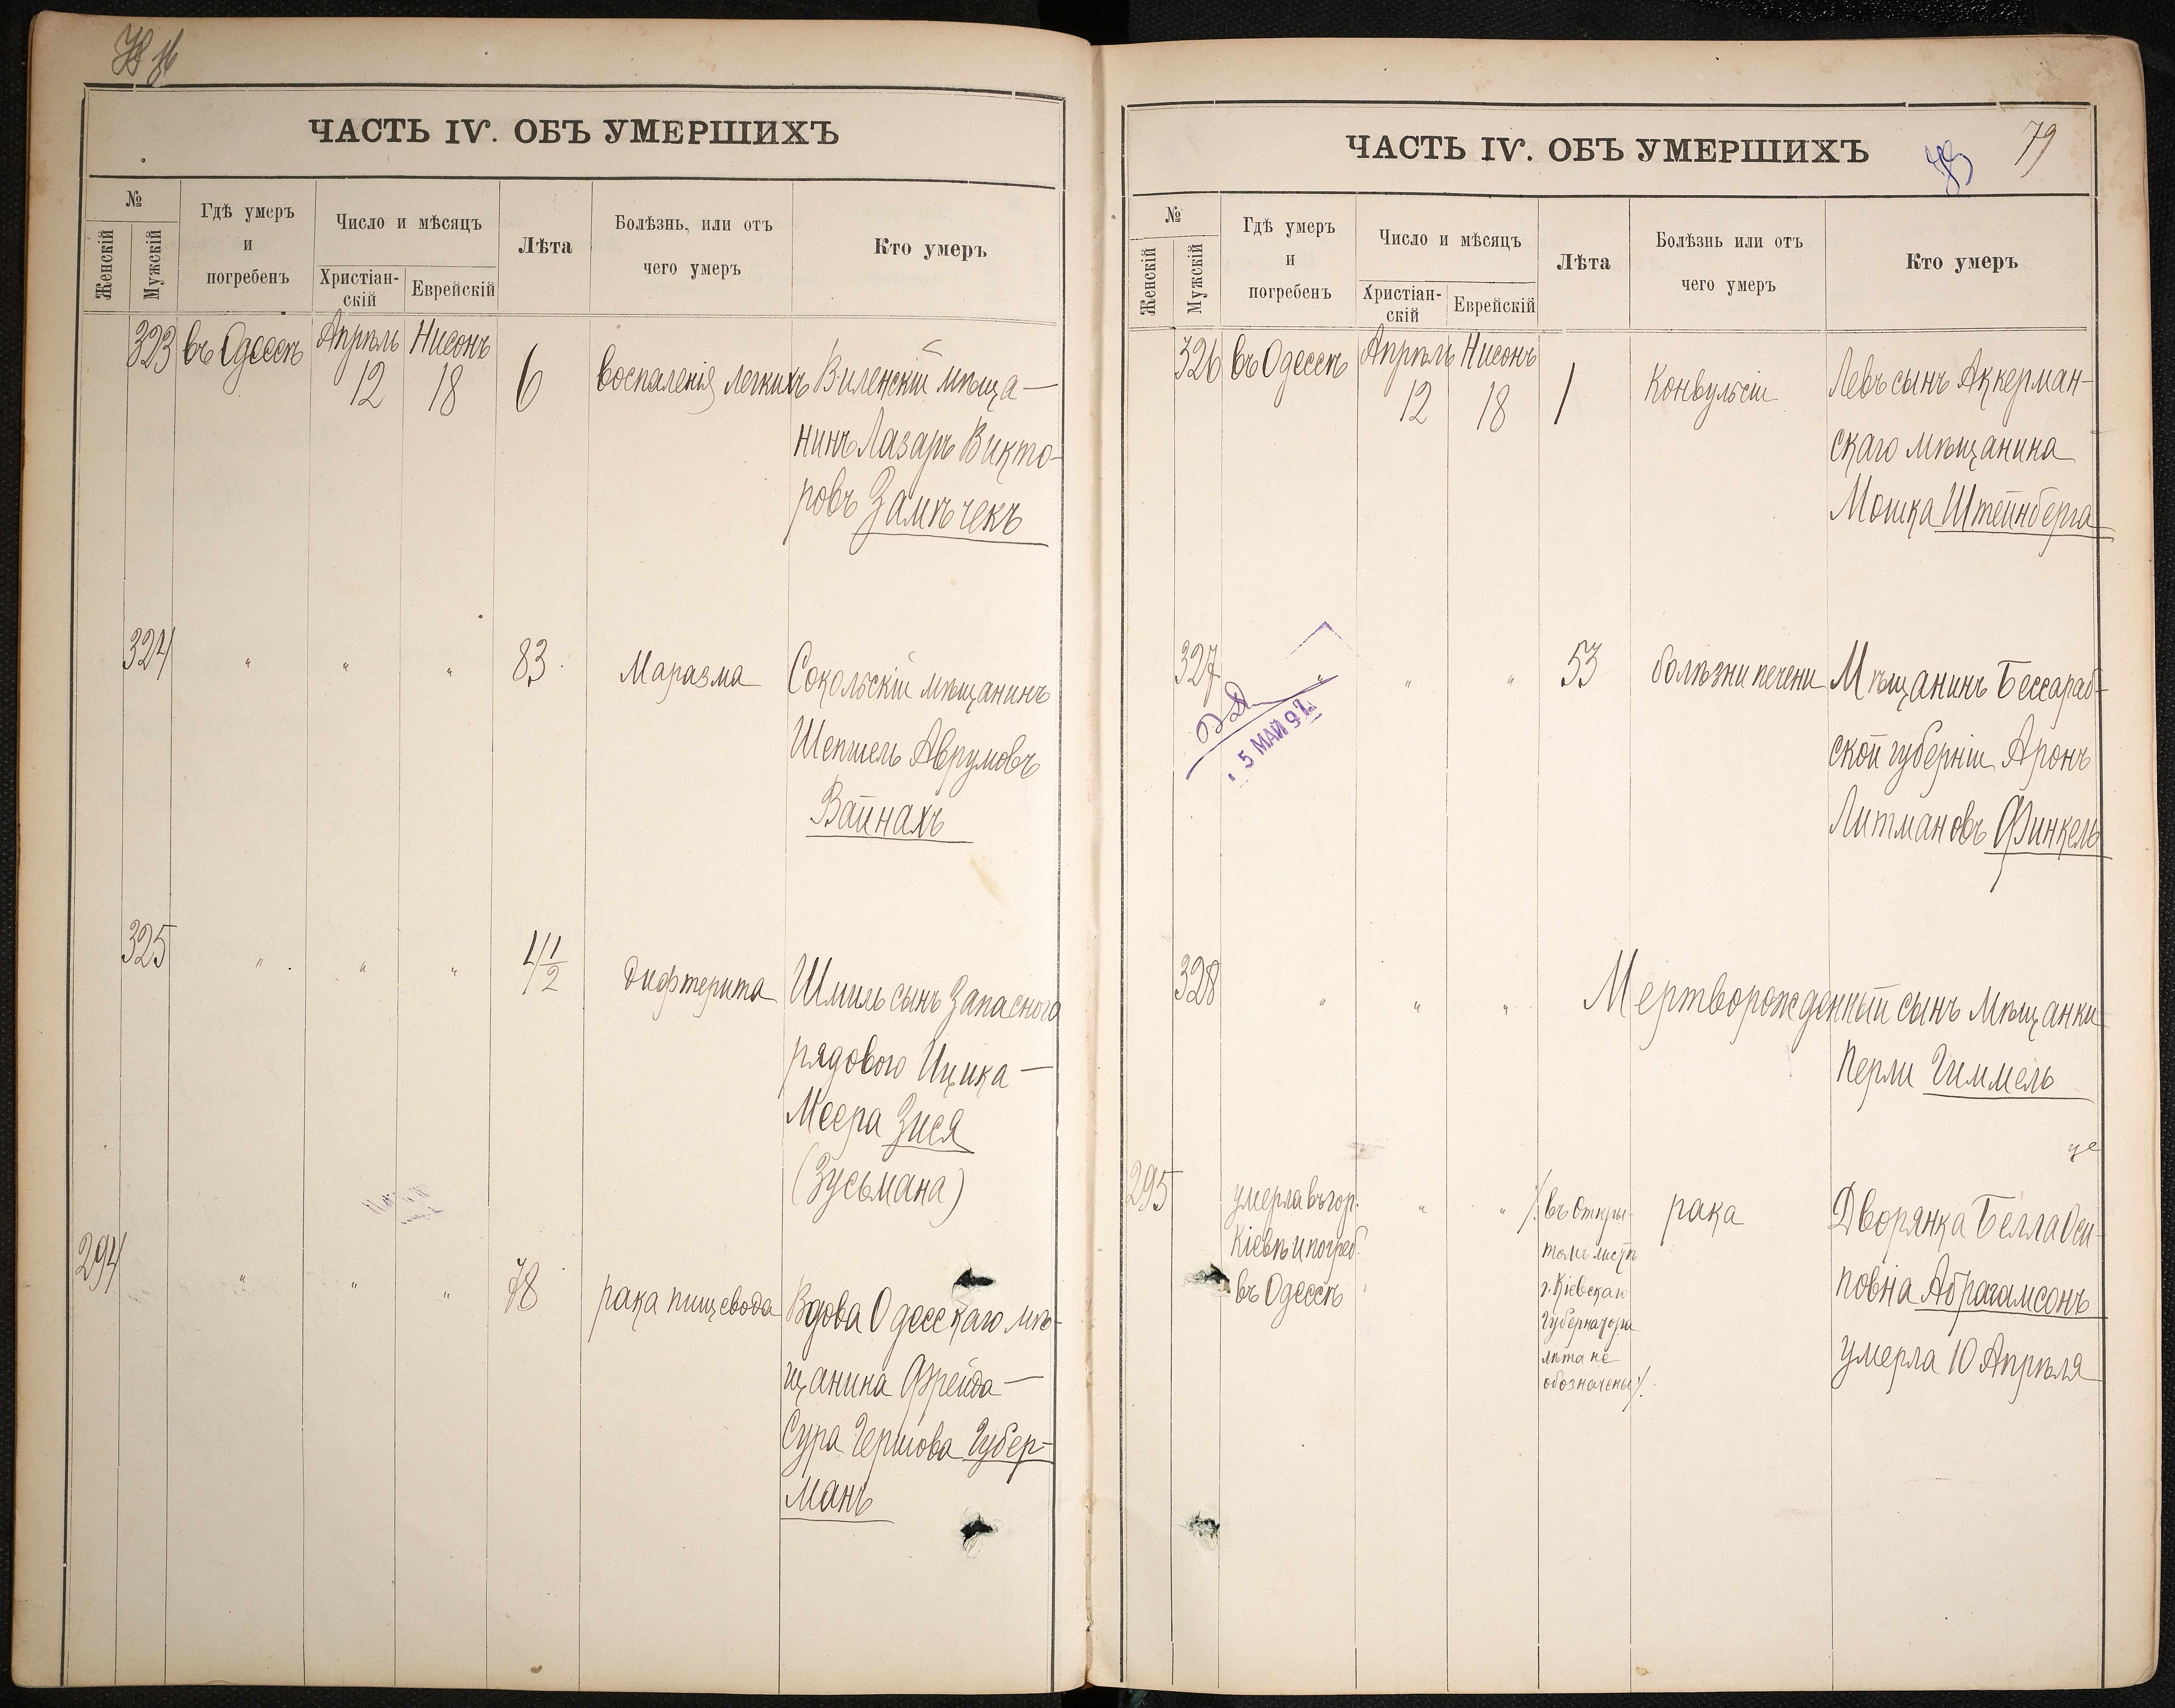 ЧАСТЬ IV. ОБЪ УМЕРШИХЪ
№
Женскій
Мужскій
Гдѣ умеръ
и
погребенъ
Число и мѣсяцъ
Христіан-
скій
Еврейскій
Лѣта
Болѣзнь, или отъ
чего умеръ
Кто умеръ
323 въ Одессѣ Апрѣль 12 Нисонъ 18 6 воспаленія легкихъ Виленскій мѣща-
нинъ Лазарь Викто-
ровъ Замѣчекъ
324 " " " 83 Маразма Сокольскій мѣщанинъ
Шепшель Аврумовъ
Вайнахъ
325 " " " 4 1/2 дифтерита Шмиль сынъ запасного
рядового Ицика-
Меера Зися
(Зусьмана)
294 " " " 78 рака пищевода Вдова Одесскаго мѣ-
щанина Фрейда-
Сура Гершова Губер-
манъ
ЧАСТЬ IV. ОБЪ УМЕРШИХЪ
79
№
Женскій
Мужскій
Гдѣ умеръ
и
погребенъ
Число и мѣсяцъ
Христіан-
скій
Еврейскій
Лѣта
Болѣзнь или отъ
чего умеръ
Кто умеръ
326 въ Одессѣ Апрѣль 12 Нисонъ 18 1 Конвульсіи Левъ сынъ Аккерман-
скаго мѣщанина
Мошка Штейнберга
327 " " " 53 болѣзни печени Мѣщанинъ Бессараб-
ской губерніи Аронъ
Литмановъ Финкель
5 МАЙ 92
328 " " " Мертворожденный сынъ мѣщанки
Перли Гиммель
295 умерла въ гор.
Кіевѣ и погреб.
въ Одессѣ
" " /.въ откры-
томъ листѣ
г. Кіевскаго
Губернатора
лѣта не
обозначены/.
рака
Дворянка Белла Оси-
повна Абрагамсонъ
умерла 10 Апрѣля